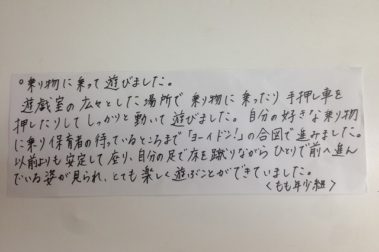 ○乗り物に乗って遊びました。
遊戯室の広々とした場所で乗り物に乗ったり手押し車を
押したりしてしっかりと動いて遊びました。自分の好きな乗り物
に乗り保育者の待っているところまで「ヨーイドン!」の合図で進みました。
以前よりも安定して座り、自分の足で床を蹴りながらひとりで前へ進ん
でいる姿が見られ、とても楽しく遊ぶことができていました。
<もも年少組>